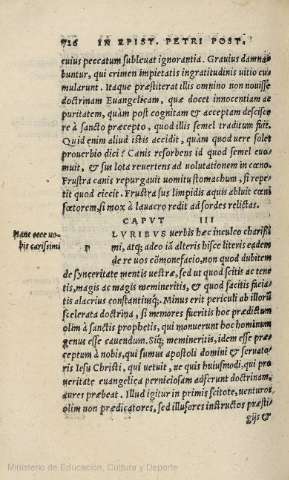 726 IN EPIST. PETRI POST.
cuius peccatum subleuat ignorantia. Grauius damna
buntur, qui crimen impietatis ingratitudinis uitio cu
mularunt. Itaque præstiterat illis omnino non nouisse
doctrinam Euangelicam, quæ docet innocentiam ac
puritatem, quàm post cognitam & acceptam desciscere
à sancto præcepto, quod illis semel traditum fuit.
Quid enim aliud istis accidit, quàm quod uere solet
prouerbio dici? Canis resorbens id quod semel euo-
muit, & sus lota reuertens ad uolutationem in cœno.
Frustra canis repurgauit uomitu stomachum, si repe-
tit quod eiecit. Frustra sus limpidis aquis abluit cœni
fœtorem, si mox à lauacro redit ad sordes relictas.
CAPVT III
Hanc ecce uo-
bis carissimi
P LVRIBVS uerbis hæc inculco charissi-
mi, atq; adeo iā alteris hisce literis eadem
de re uos cōmonefacio, non quod dubitem
de synceritate mentis uestræ, sed ut quod scitis ac tene
tis, magis ac magis memineritis, & quod facitis facia
tis alacrius constantiusq;. Minus erit periculi ab illorū
scelerata doctrina, si memores fueritis hoc prædictum
olim à sanctis prophetis, qui monuerunt hoc hominum
genus esse cauendum. Siq; memineritis, idem esse præ-
ceptum à nobis, qui sumus apostoli domini & seruato
ris Iesu Christi, qui uetuit, ne quis huiusmodi, qui pro
ueritate euangelica perniciosam adferunt doctrinam,
aures præbeat. Illud igitur in primis scitote, uenturos
olim non prædicatores, sed illusores instructos præsti-
gijs &
Ministerio de Educación, Cultura y Deporte